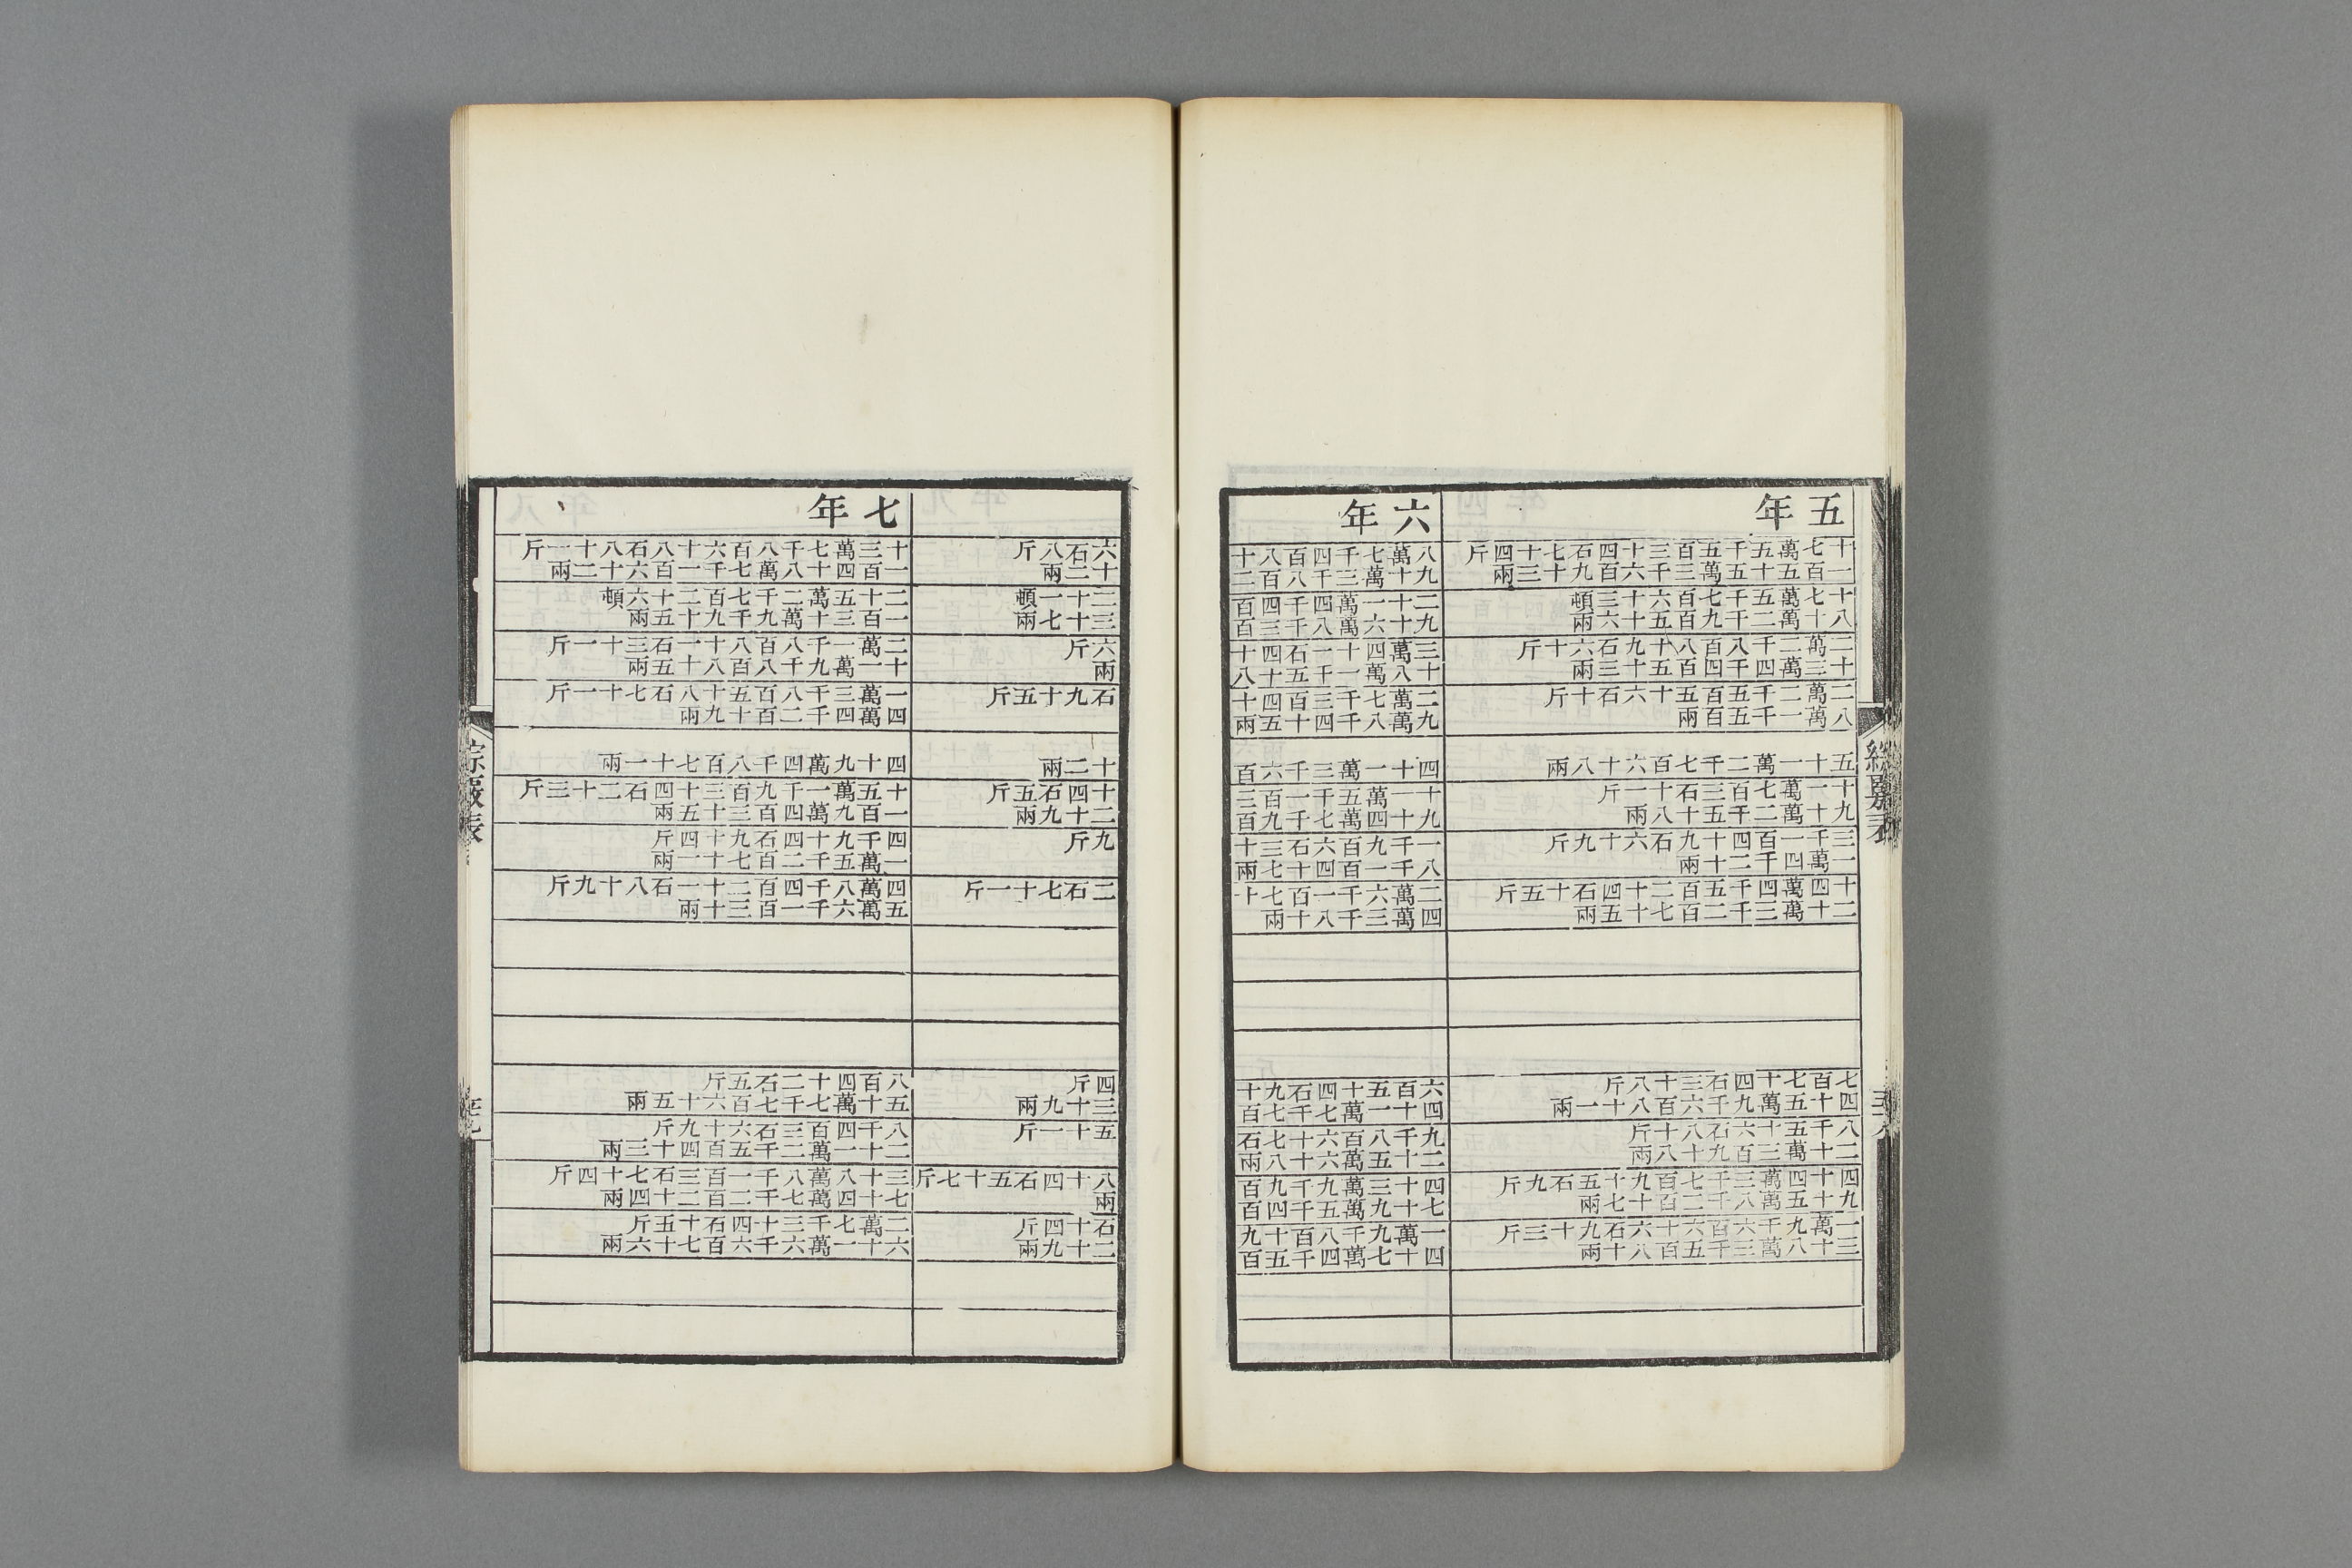 五年
十七萬五千五百三十四石七十四斤
一百五十五萬三千六百九十三兩
十七萬五千七百六十三頓
八十萬二千九百五十六兩
三萬二千八百八十九石六十斤
十三萬四千四百五十三兩
二萬二千五百五十六石十斤
八萬一千五百兩
五十一萬二千七百六十八兩
十一萬七百三石十一斤
九十萬二千五十八兩
三千一百四十九石六十九斤
一萬四千二十兩
十四萬四千五百二十四石十五斤
二十萬三千二百七十五兩
七百七十四石三十八斤
四十五萬九千六百八十一兩
八千五十六石八十斤
二十萬三百九十八兩
四十四萬三千七百九十五石九斤
九十五萬八千二百十七兩
一萬九千六百六十六石九十三斤
三十八萬三千五百八十兩
六年
八萬七千四百八十
九十萬三千八百二
二十一萬四千四百
九十六萬八千三百
三萬四十一石四十
十八萬一千五十八
二萬七千三百四十
九萬八千四十五兩
四十一萬三千六百
十一萬五千一百三
九十四萬七千九百
一千九百六石三十
八千一百四十七兩
二萬六千一百七十
四萬三千八十兩
六百五十四石九十
四十一萬七千七百
九千八百六十七石
二十五萬六十八兩
四十三萬九千九百
七十九萬五千四百
一萬九千八百十九
四十七萬四千五百
六石八斤
十二兩
二十一頓
三十七兩
六斤
兩
石九十五斤
十二兩
十四石五斤
二十九兩
九斤
二石七十一斤
四斤
三十九兩
五十一斤
八十四石五十七斤
兩
石十四斤
二十九兩
七年
十三萬七千八百六十八石八十一斤
一百四十八萬七千一百六十二兩
二十五萬二千七百二十六頓
一百三十萬九千九十五兩
二萬一千八百八十一石三十一斤
十一萬九千八百八十五兩
一萬三千八百五十八石七十一斤
四萬四千二百十九兩
四十九萬四千八百七十一兩
十五萬一千九百三十四石二十三斤
一百九萬四百三十五兩
四千九十四石九十四斤
一萬五千二百七十一兩
四萬八千四百二十一石八十九斤
五萬六千一百三十兩
八百四十二石五斤
五十萬七千七百六十五兩
八千四百三石六十九斤
二十一萬二千五百四十三兩
三十八萬八千一百三石七十四斤
七十四萬七千二百二十四兩
二萬七千三十四石十五斤
六十一萬六千六百七十六兩